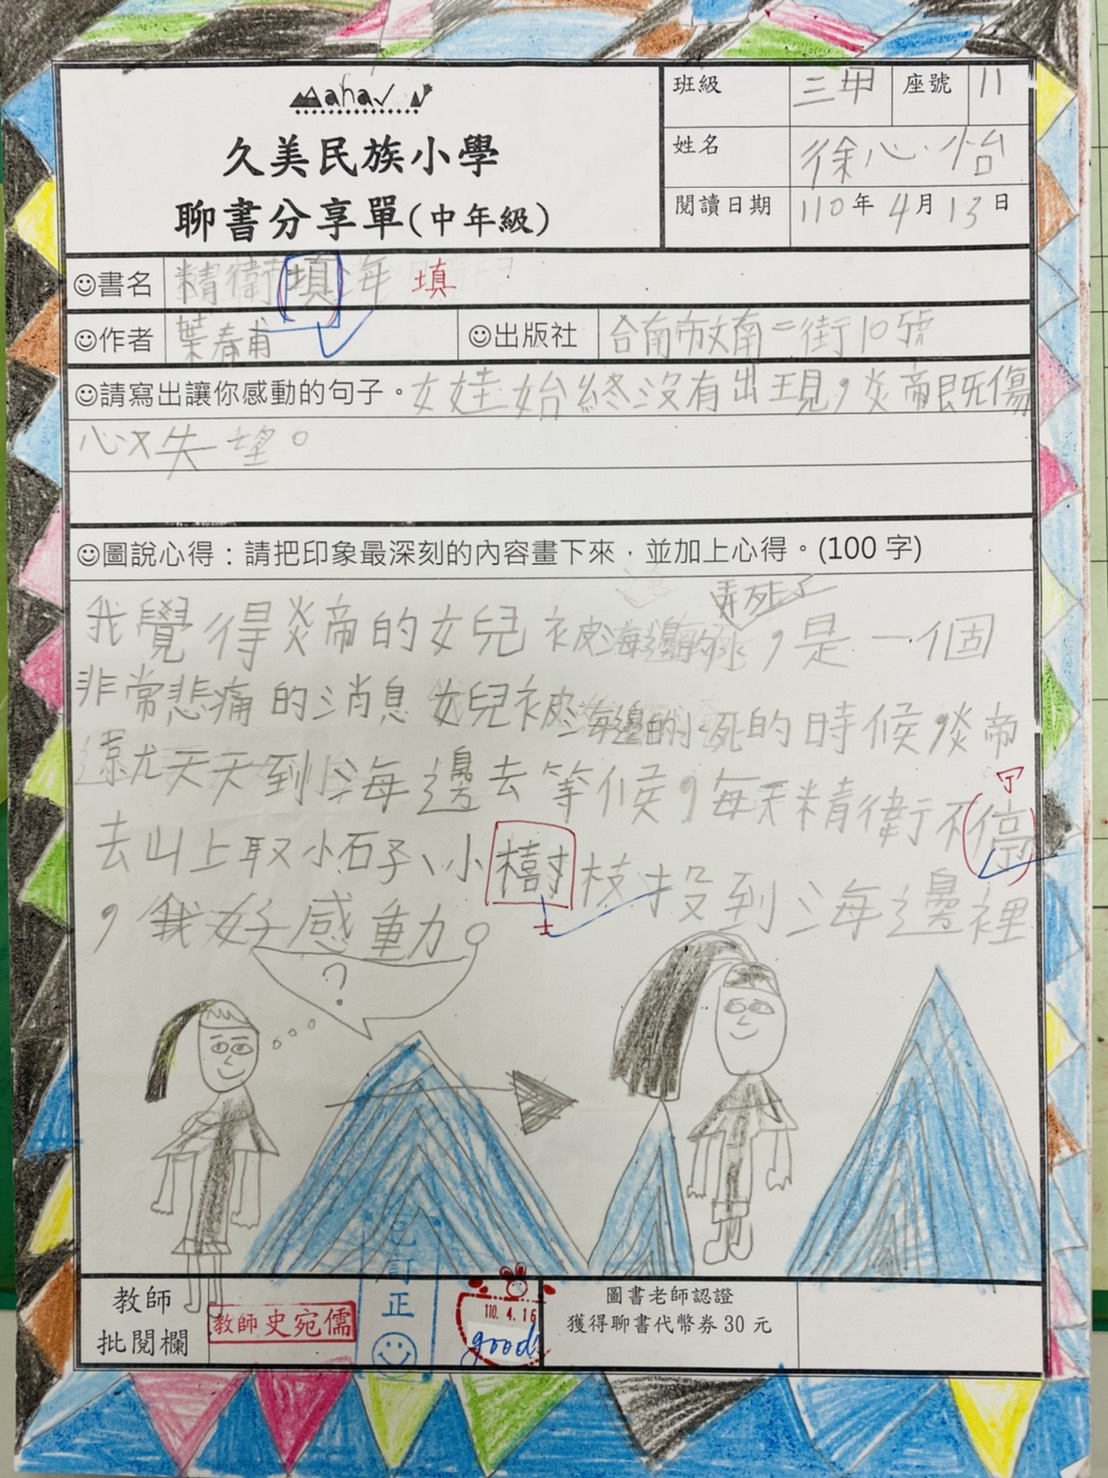 Mahav
久美民族小學
聊書分享單(中年級)
班級 三甲 座號 11
姓名 徐心怡
閱讀日期 110年 4月 13日
☺書名 精衛填海 填
☺作者 葉春甫 ☺出版社 台南市文南二街10號
☺請寫出讓你感動的句子。女娃始終沒有出現，炎帝既傷
心又失望。
☺圖說心得：請把印象最深刻的內容畫下來，並加上心得。(100字)
弄死了
我覺得炎帝的女兒被海邊的水，是一個
非常悲痛的消息女兒被海邊的水死的時候，炎帝
還就天天到海邊去等候，每天精衛不停
去山上取小石子、小樹枝投到海邊裡
，我好感動。
?
教師
批閱欄
教師史宛儒
已訂正
110.4.16
good
圖書老師認證
獲得聊書代幣券30元